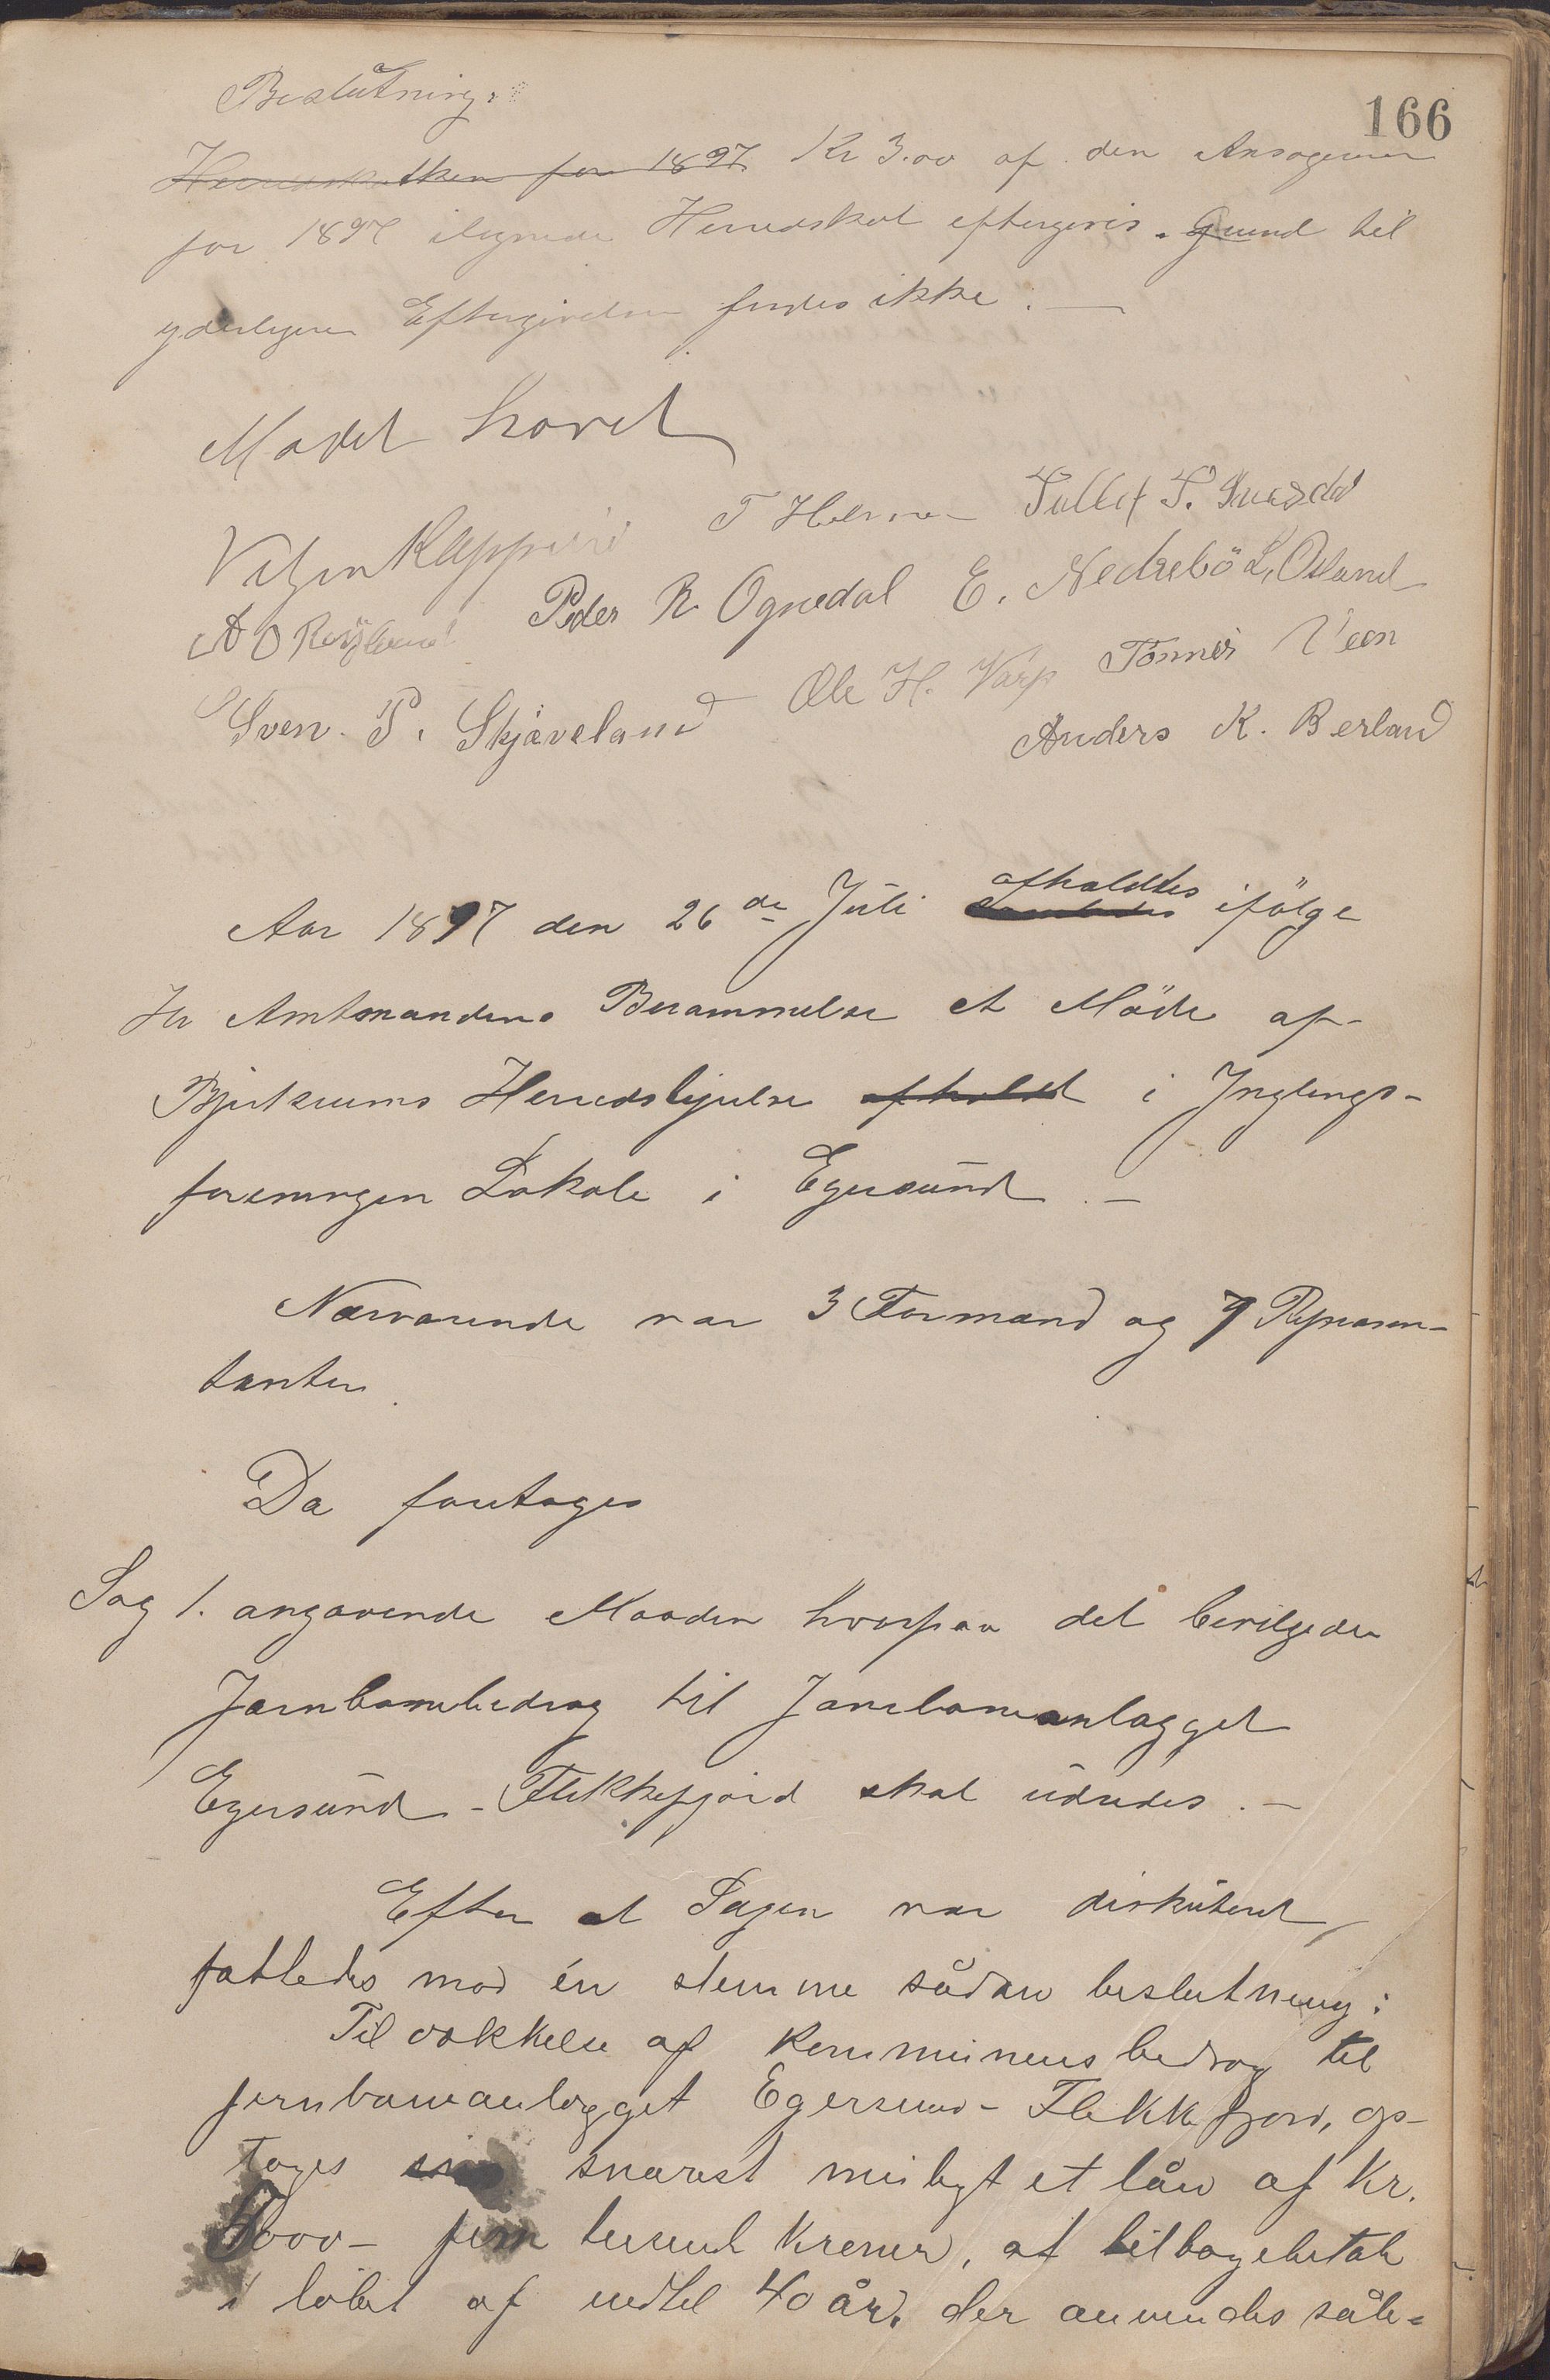 166
Beslutning:
Herredsskatten for 1897 Kr 3.00 af den Ansøgeren
for 1897 ilignede Herredskat eftergives. Grund til
yderligere Eftergivelse findes ikke. —
Mødet hævet
T Helvig Tollef T.
Peder R Ognedal E. Nedrebö L, Osland
Sven P. Skjæveland Ole H. Varp Tönnes Veen
Anders K. Berland
Aar 1897 den 26de Juli afholdtes ifölge
Hr Amtmandens Berammelse et Möde af
Bjerkreims Herredsstyrelse afholdt i Ynglings-
foreningen Lokale i Egersund. —
Nærværende var 3 Formænd og 7 Repræsen-
tanter.
Da foretoges
Sag 1. angaaende Maaden hvorpaa det bevilgede
Jernbanebidrag til Jernbaneanlægget
Egersund - Flekkefjord skal udredes. —
Efter at Sagen var diskuteret,
fattedes mod én stemme sådan beslutning:
Til dækkelse af kommunens bedrag til
jernbaneanlægget Egersund - Flekkefjord, op-
tages snarest muligt et lån af Kr.
5000 - fem tusend kroner, at tilbagebetale
i löbet af indtil 40 år, der anvendes såle-